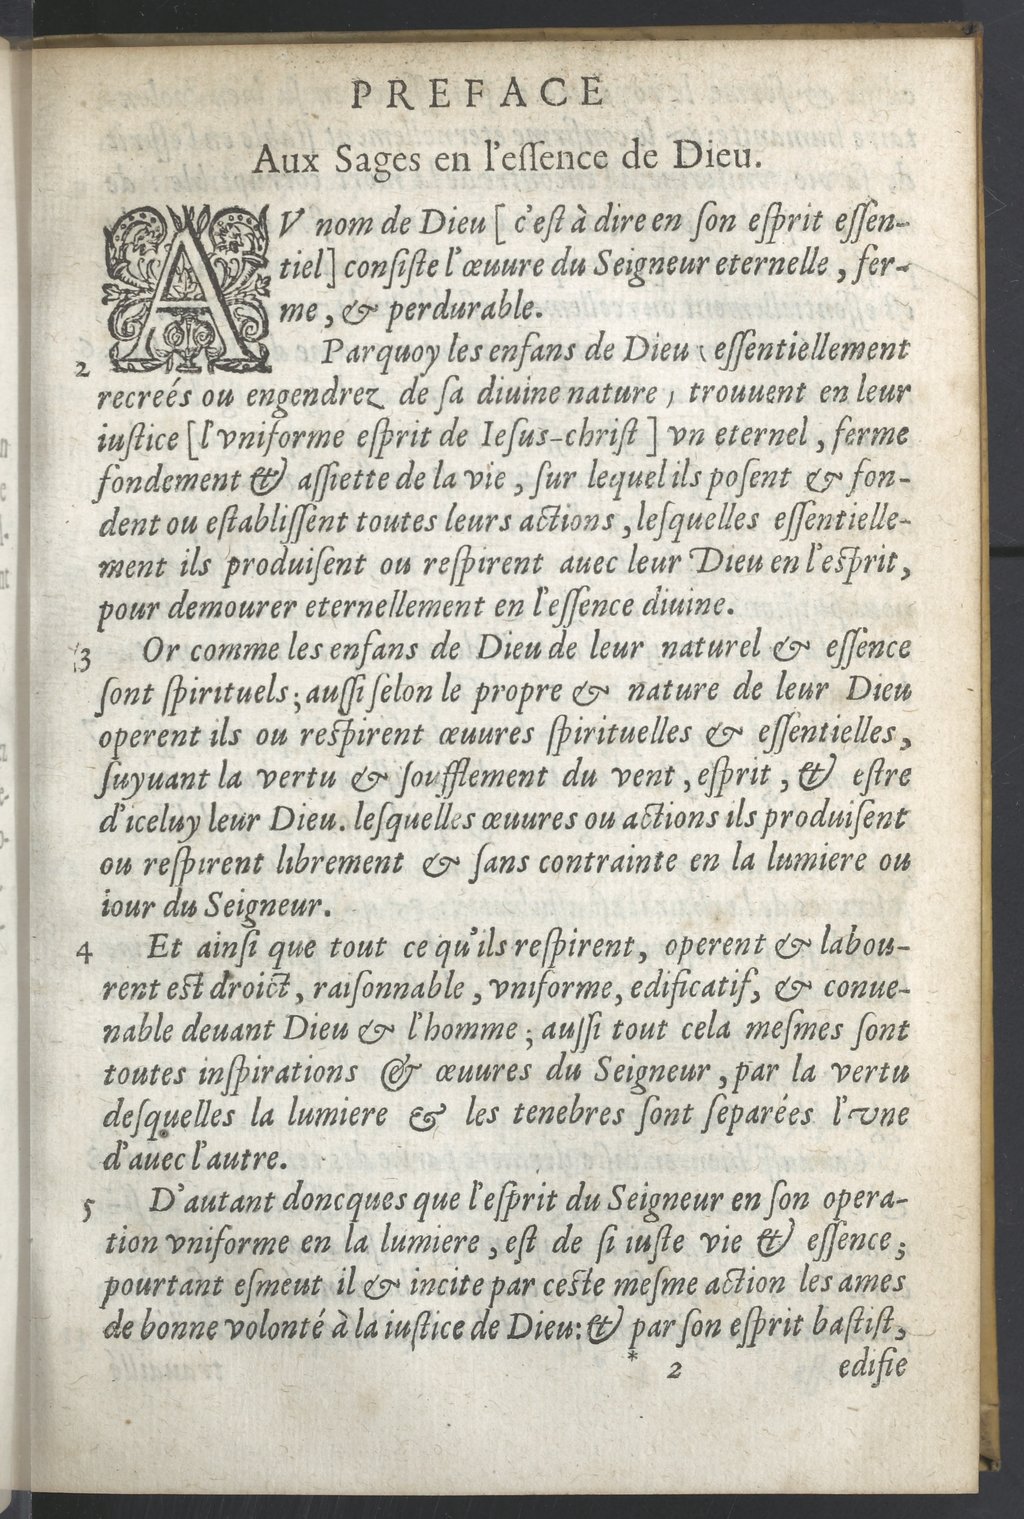 PREFACE
Aux Sages en l'eſſence de Dieu.
AV nom de Dieu [ c'eſt à dire en ſon eſprit eſſen-
tiel] conſiſte l'œuure du Seigneur eternelle, fer-
me, & perdurable.
2 Parquoy les enfans de Dieu, eſſentiellement
recreés ou engendrez de ſa diuine nature, trouuent en leur
iuſtice [l'vniforme eſprit de Ieſus-chriſt] vn eternel, ferme
fondement & aſſiette de la vie, ſur lequel ils poſent & fon-
dent ou eſtabliſſent toutes leurs actions, leſquelles eſſentielle-
ment ils produiſent ou reſpirent auec leur Dieu en l'eſprit,
pour demourer eternellement en l'eſſence diuine.
3 Or comme les enfans de Dieu de leur naturel & eſſence
ſont ſpirituels; auſſi ſelon le propre & nature de leur Dieu
operent ils ou reſpirent œuures ſpirituelles & eſſentielles,
ſuyuant la vertu & ſoufflement du vent, eſprit, & eſtre
d'iceluy leur Dieu. leſquelles œuures ou actions ils produiſent
ou reſpirent librement & ſans contrainte en la lumiere ou
iour du Seigneur.
4 Et ainſi que tout ce qu'ils reſpirent, operent & labou-
rent eſt droict, raiſonnable, vniforme, edificatif, & conue-
nable deuant Dieu & l'homme; auſſi tout cela meſmes ſont
toutes inſpirations & œuures du Seigneur, par la vertu
deſquelles la lumiere & les tenebres ſont ſeparées l'vne
d'auec l'autre.
5 D'autant doncques que l'eſprit du Seigneur en ſon opera-
tion vniforme en la lumiere, eſt de ſi iuſte vie & eſſence;
pourtant eſmeut il & incite par ceſte meſme action les ames
de bonne volonté à la iuſtice de Dieu: & par ſon eſprit baſtiſt,
* 2 edifie